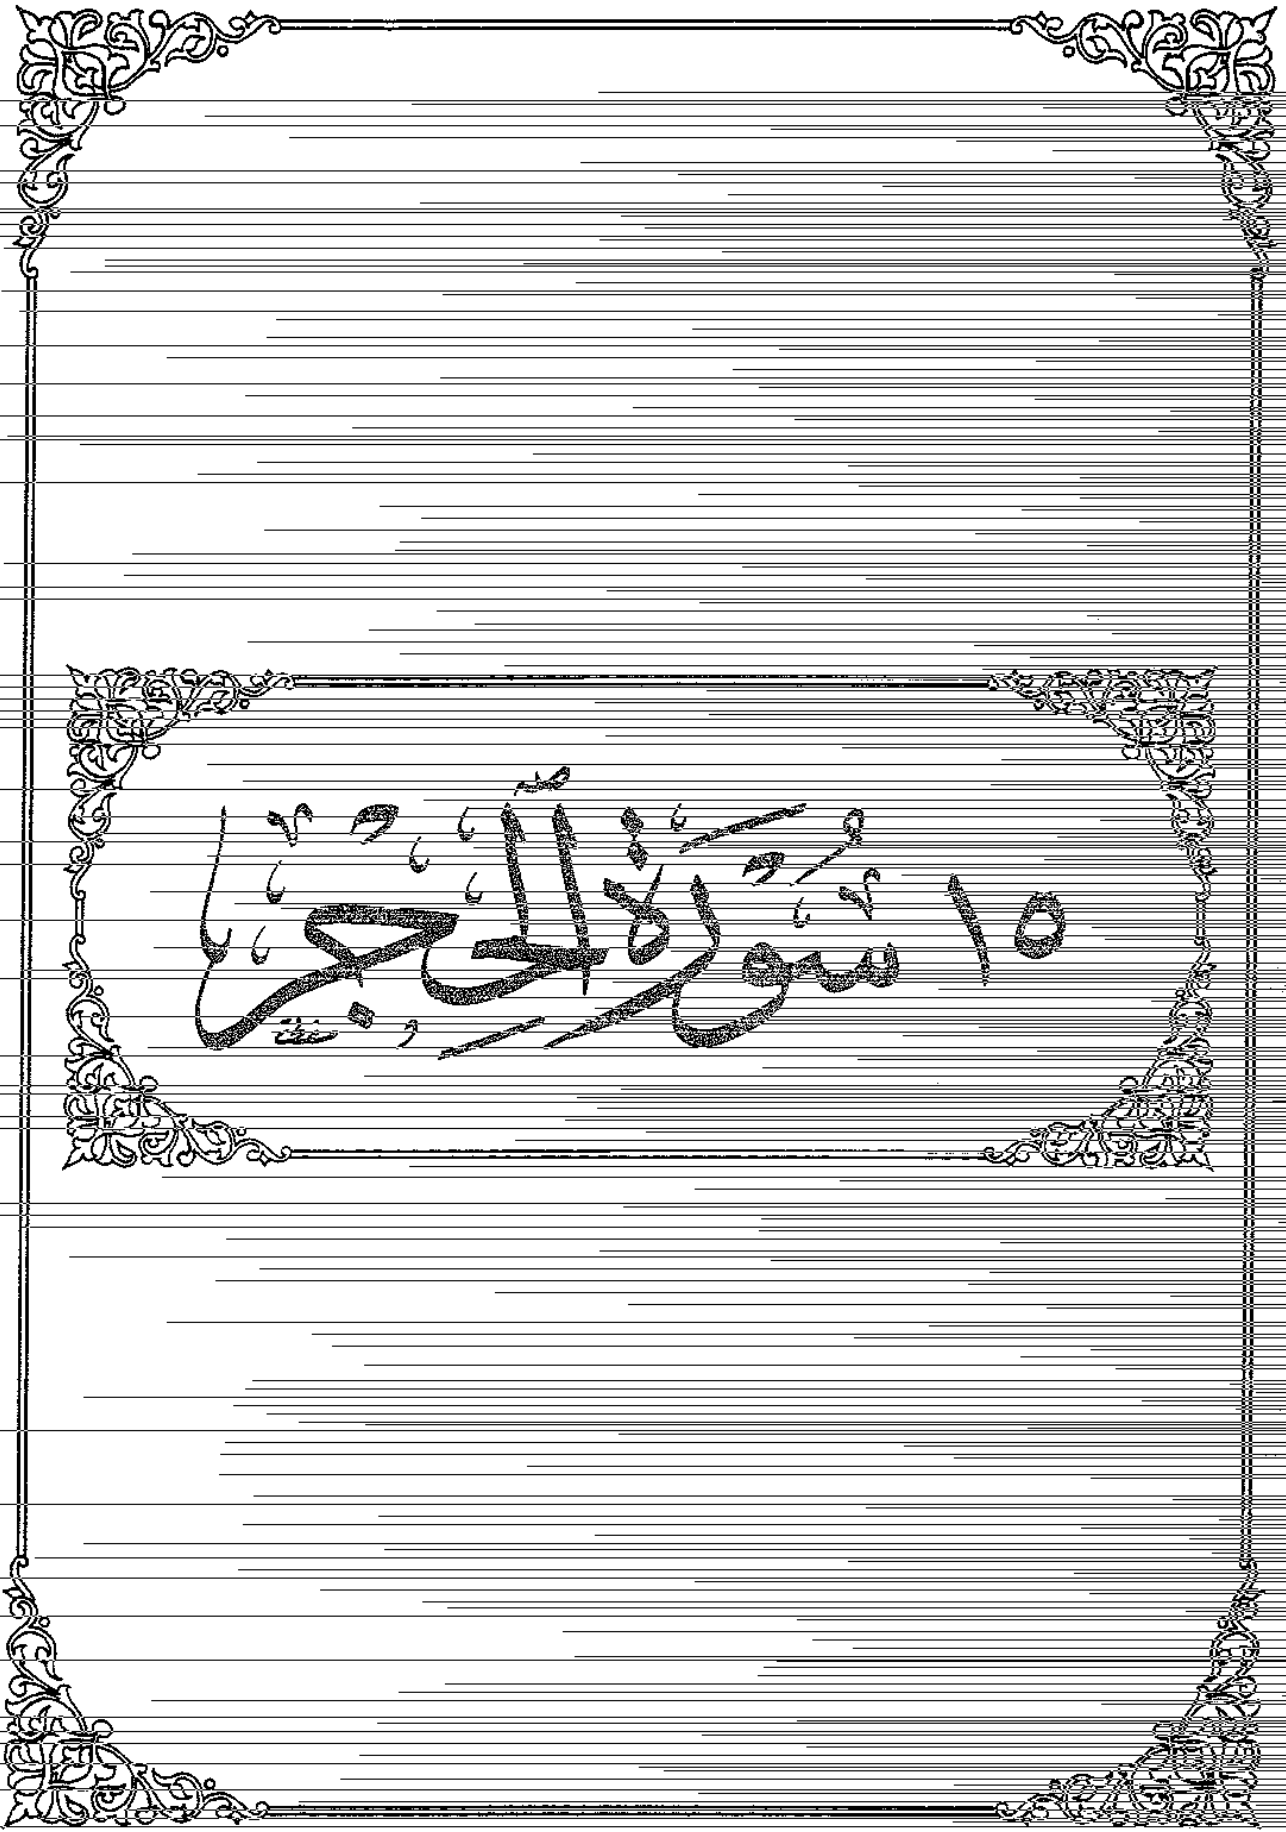 ١٥ سُورَةُ الحِجْرِ